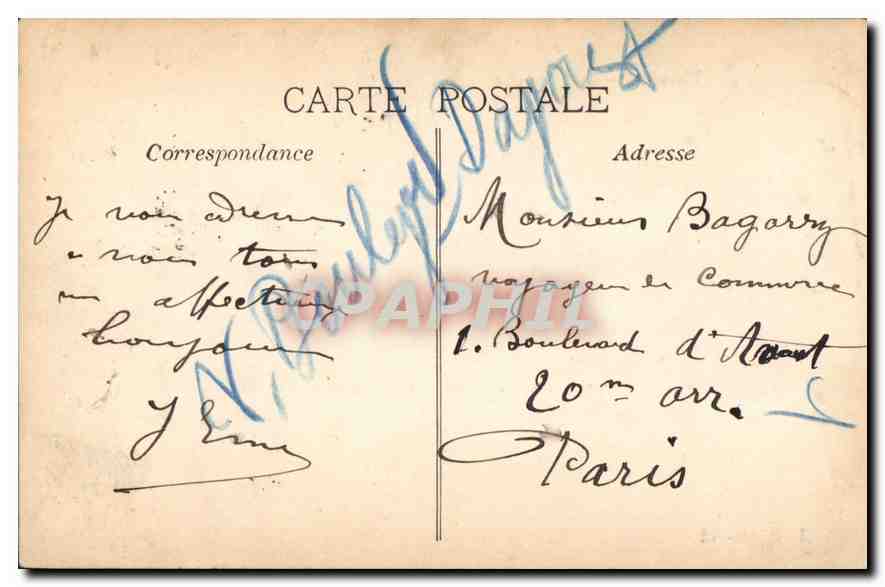 CARTE POSTALE
Correspondance
Je vous adresse
à vous tous
un affectueux
bonjour
J Eme
Adresse
Monsieur Bagarry
voyageur de Commerce
1. Boulevard d'
20me arr.
Paris
Boulevd
DELPAPHIL